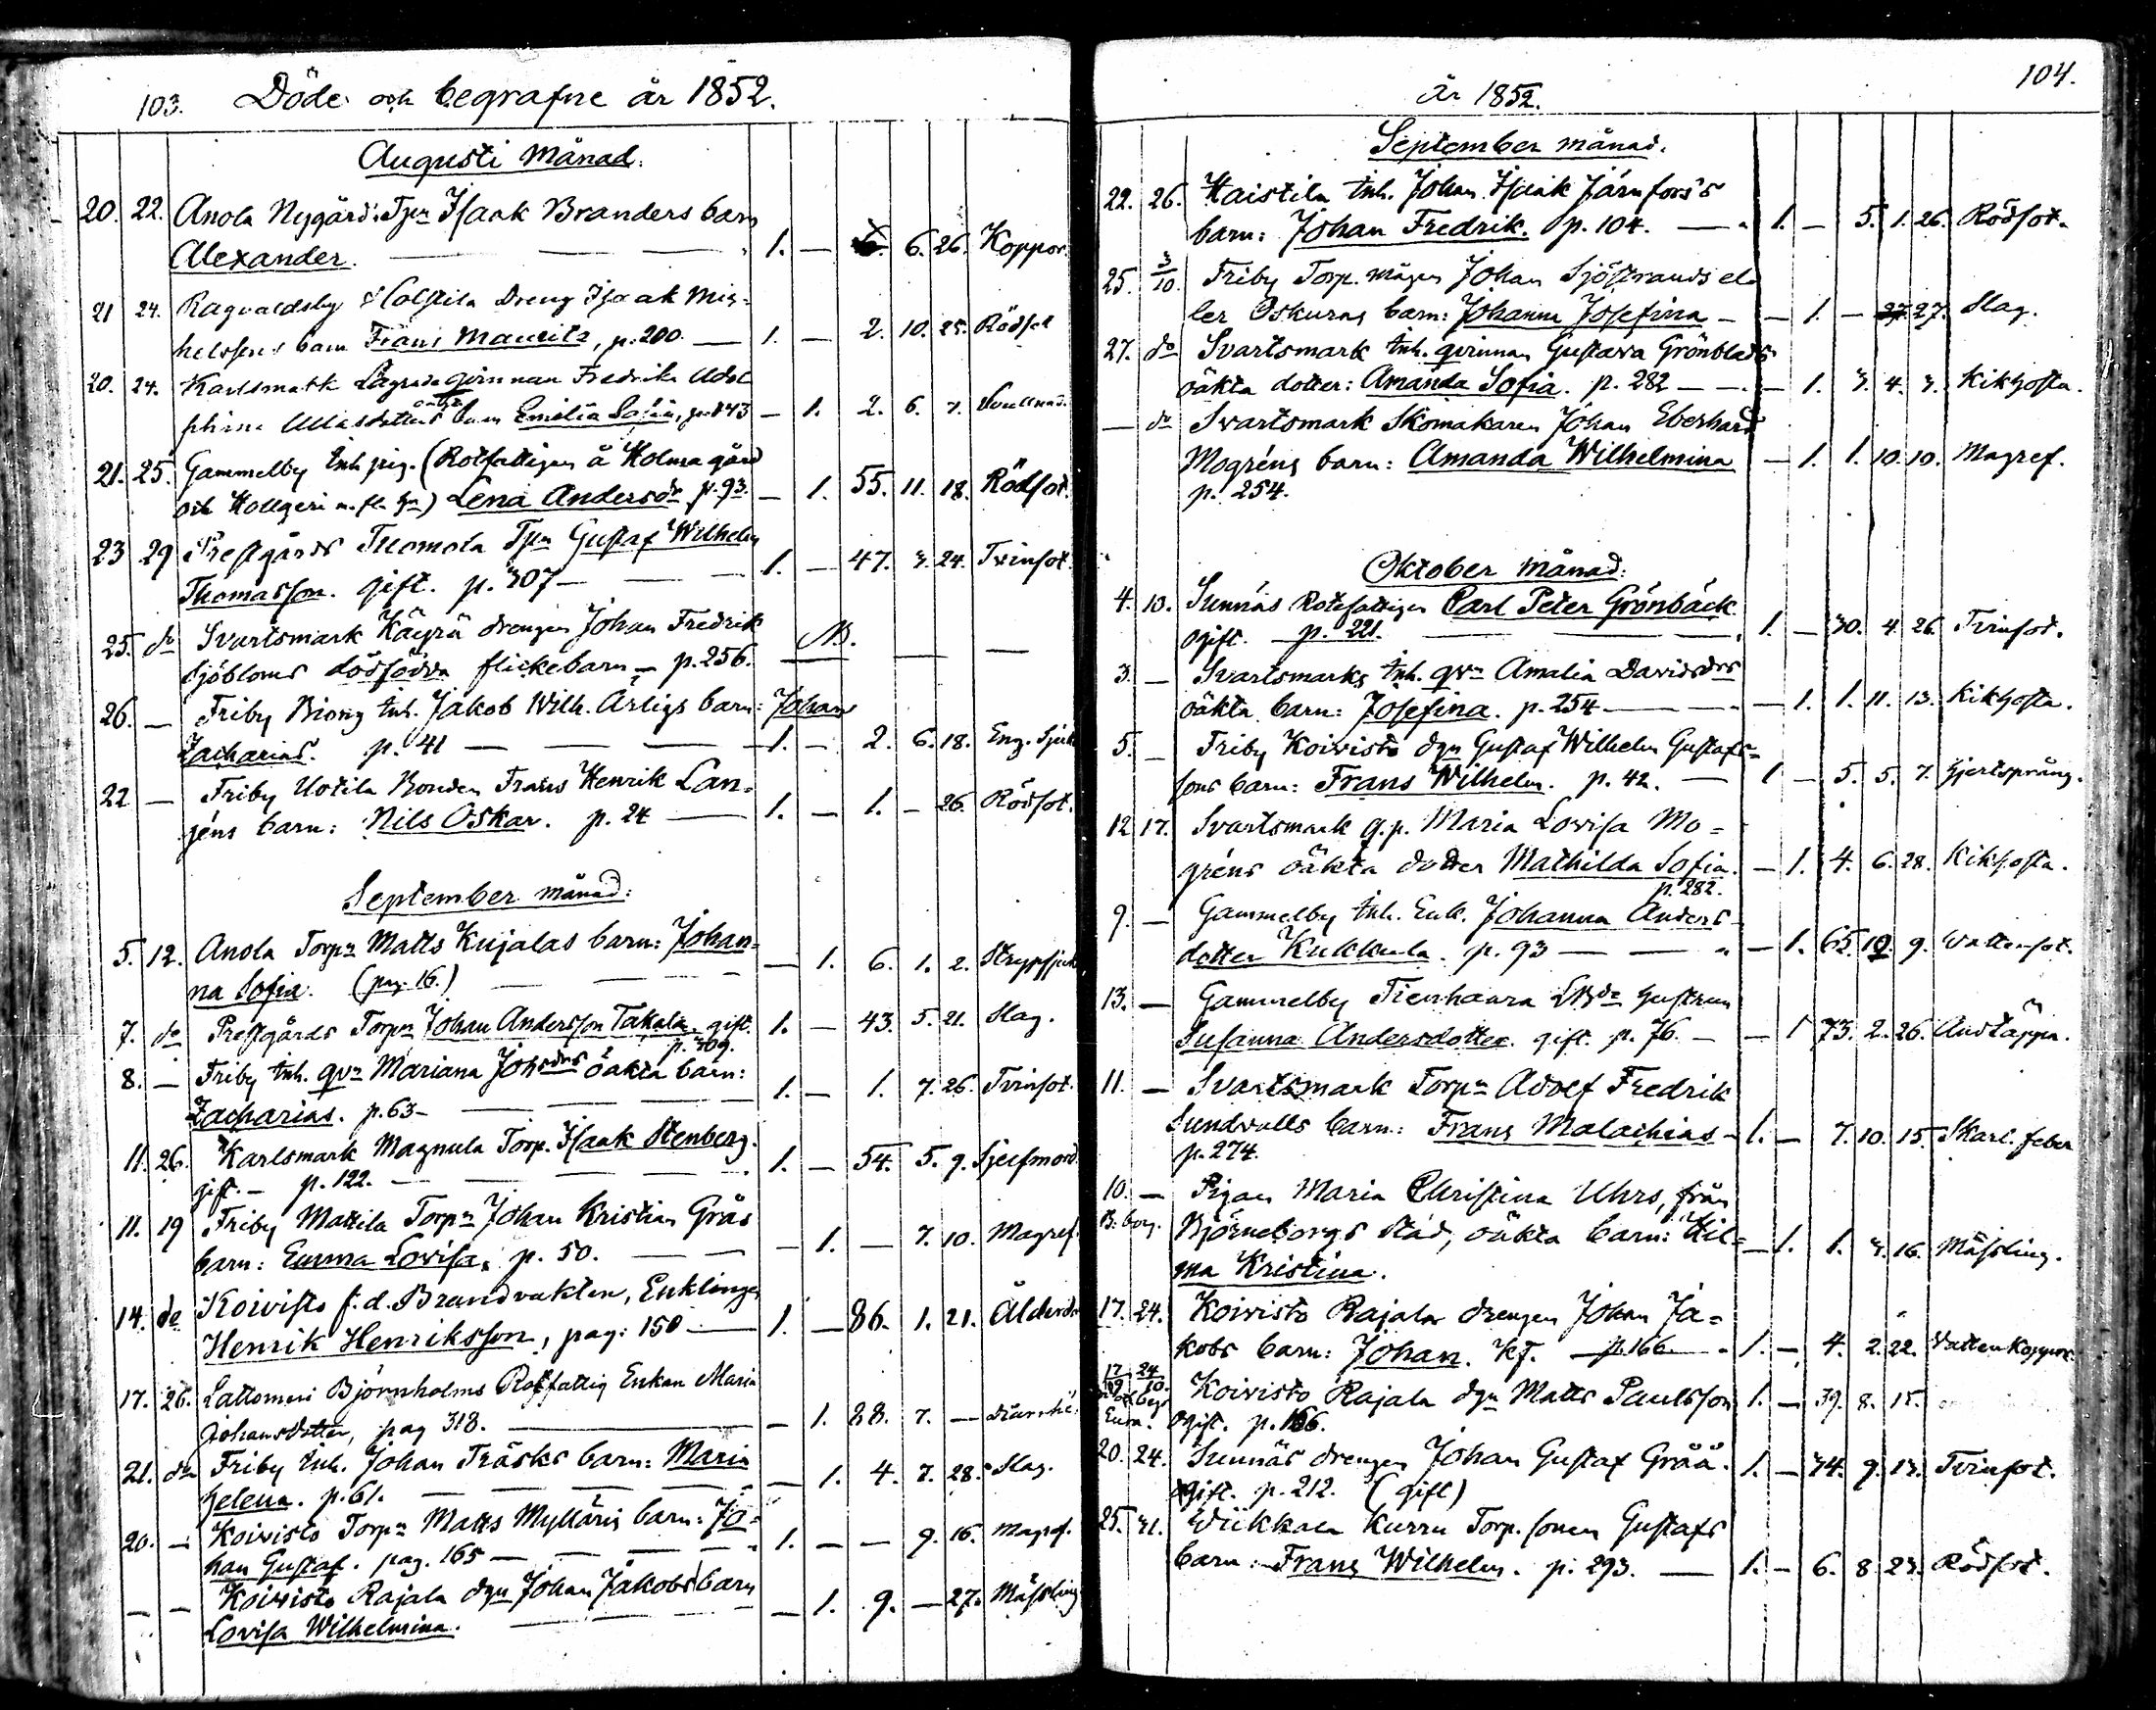 103. Döde och begrafne år 1852.
Augusti månad.
20. 22. Anola Nygård: Tpr Isaak Branders barn
Alexander. 1. — 6. 26. Koppor.
21 24. Ragvaldsby Dreng Isaak Mic-
helssons barn Frans Mauritz, p. 200. 1. — 2. 10. 25. Rödsot
20. 24. Karlsmark qvinnan Fredrika Adol
phina barn Emelia Sofia, — 1. 2. 6. 7.
21. 25. Gammelby Inh. pig. (Rotfattigen å Holma gård
och Hollgeri m. fl. ) Lena Andersdr p. 93. — 1. 55. 11. 18. Rödsot.
23 29 Prestgårds Thomola Tpn Gustaf Wilhelm
Thomasson. gift. p. 307 — 1. — 47. 3. 24. Tvinsot.
25. do Svartsmark Käyrä drengen Johan Fredrik
Sjöbloms dödfödda flickebarn — p. 256. —
26. — Friby Inh. Jakob Wilh. Ärligs barn: Johan
Zacharias. p. 41 — 1. — 2. 6. 18. Eng. Sjuk
22 — Friby Uotila Bonden Frans Henrik Lan-
géns barn: Nils Oskar. p. 24 — 1. — 1. — 26. Rödsot.
September månad:
5. 12. Anola Torpn Matts Kujalas barn: Johan-
na Sofia. (pag. 16.) — 1. 6. 1. 2. Strypsjuk
7. do Prestgårds Torpn Johan Andersson Takala. gift. 1. — 43. 5. 21. Slag.
p. 309.
8. — Friby Inh. qvn Mariana Johsdrs oäkta barn:
Zacharias. p. 63 — 1. — 1. 7. 26. Tvinsot.
11. 26. Karlsmark Magnula Torp. Isaak Stenberg.
gift. — p. 122. — 1. — 54. 5. 9. Sjelfmord
11. 19 Friby Mattila Torpn Johan Kristian Grås
barn: Emma Lovisa. p. 50. — 1. — 7. 10. Magref.
14. do Koivisto f. d. Brandvakten, Enklingen
Henrik Henriksson, pag: 150 — 1. — 86. 1. 21. Ålderdo
17. 26. Lattomeri Björnholms Rotfattig Enkan Maria
Johansdotter, pag 318. — 1. 88. 7. —
21. do Friby Inh. Johan Träsks barn: Maria
Helena. p. 61. — 1. 4. 7. 28. Slag.
20. — Koivisto Torpn Matts Mylläris barn: Jo-
han Gustaf. pag. 165 — 1. — — 9. 16. Magref.
— — Koivisto Rajala dgn Johan Jakobs barn
Lovisa Wilhelmina. — 1. 9. — 27. Mässling
104.
år 1852.
September månad.
22. 26. Haistila Inh. Johan Isaak Järnfors's
barn: Johan Fredrik. p. 104. — 1. — 5. 1. 26. Rödsot.
25. 3/10. Friby Torp. mågen Johan Sjöstrands el-
ler Oskuras barn: Johanna Josefina — — 1. — 27. Slag.
27. do Svartsmark Inh. qvinnan Gustava Grönblads
oäkta dotter: Amanda Sofia. p. 282 — — 1. 3. 4. 3. Kikhosta.
— do Svartsmark Skomakaren Johan Eberhard
Mogréns barn: Amanda Wilhelmina — 1. 1. 10. 10. Magref.
p. 254.
Oktober månad:
4. 10. Sunnäs Rotefattigen Carl Peter Grönbäck
ogift. p. 221. — 1. — 30. 4. 26. Tvinsot.
3. — Svartsmarks Inh. qvn Amalia Davidsdrs
oäkta barn: Josefina. p. 254 — — 1. 1. 11. 13. Kikhosta.
5. — Friby Koivisto dgn Gustaf Wilhelm Gustafs-
sons barn: Frans Wilhelm. p. 42. — 1 — 5. 5. 7. Hjertsprång.
12 17. Svartsmark q. p. Maria Lovisa Mo-
gréns oäkta dotter Mathilda Sofia. — 1. 4. 6. 28. Kikhosta.
p. 282.
9. — Gammelby Inh. Enk. Johanna Anders-
dotter Kukkula. p. 93 — — 1. 65. 10. 9. Vattensot.
13. — Gammelby Tienhaara hustrun
Susanna Andersdotter. gift. p. 76. — — 1 73. 2. 26. Andtäppa.
11. — Svartsmark Torpn Adolf Fredrik
Sundvalls barn: Frans Malachias — 1. — 7. 10. 15. Skarl. feber
p. 274.
10. — Pigan Maria Christina Uhrs, från
B:borg. Björneborgs stad, oäkta barn: Hil-
ma Kristina. — 1. 1. 3. 16. Mässling.
17. 24. Koivisto Rajala drengen Johan Ja-
kobs barn: Johan. Kf. — p. 166. — 1. — 4. 2. 22. Vattenkoppor.
17 24
Koivisto Rajala dgn Matts Paulsson 1. — 39. 8. 15.
Eura. ogift. p. 166.
20. 24. Sunnäs drengen Johan Gustaf Gråå. 1. — 34. 9. 13. Tvinsot.
ogift. p. 212. (gift)
25. 31. Wiikkala Kurru Torp. sonen Gustafs
barn: Frans Wilhelm. p. 293. — 1. — 6. 8. 23. Rödsot.